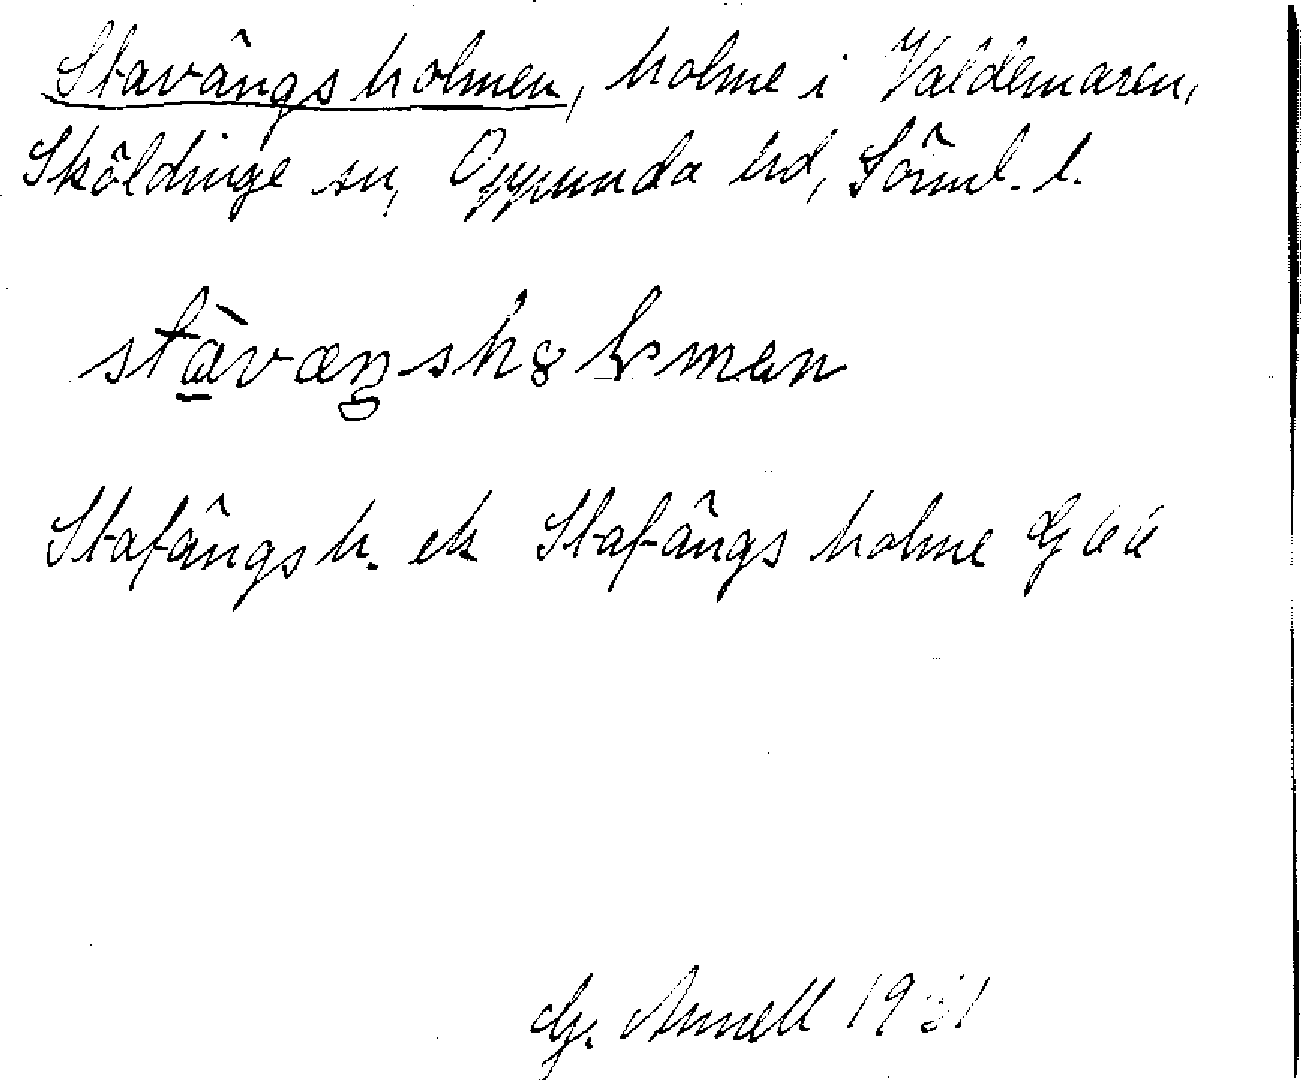 Stavängsholmen, holme i Valdemaren,
Sköldinge sn, Oppunda hd, Söml. l.
stàvæŋshȣlmən
Stafängsh. ek Stafängs holme Gää
G. Annell 1931